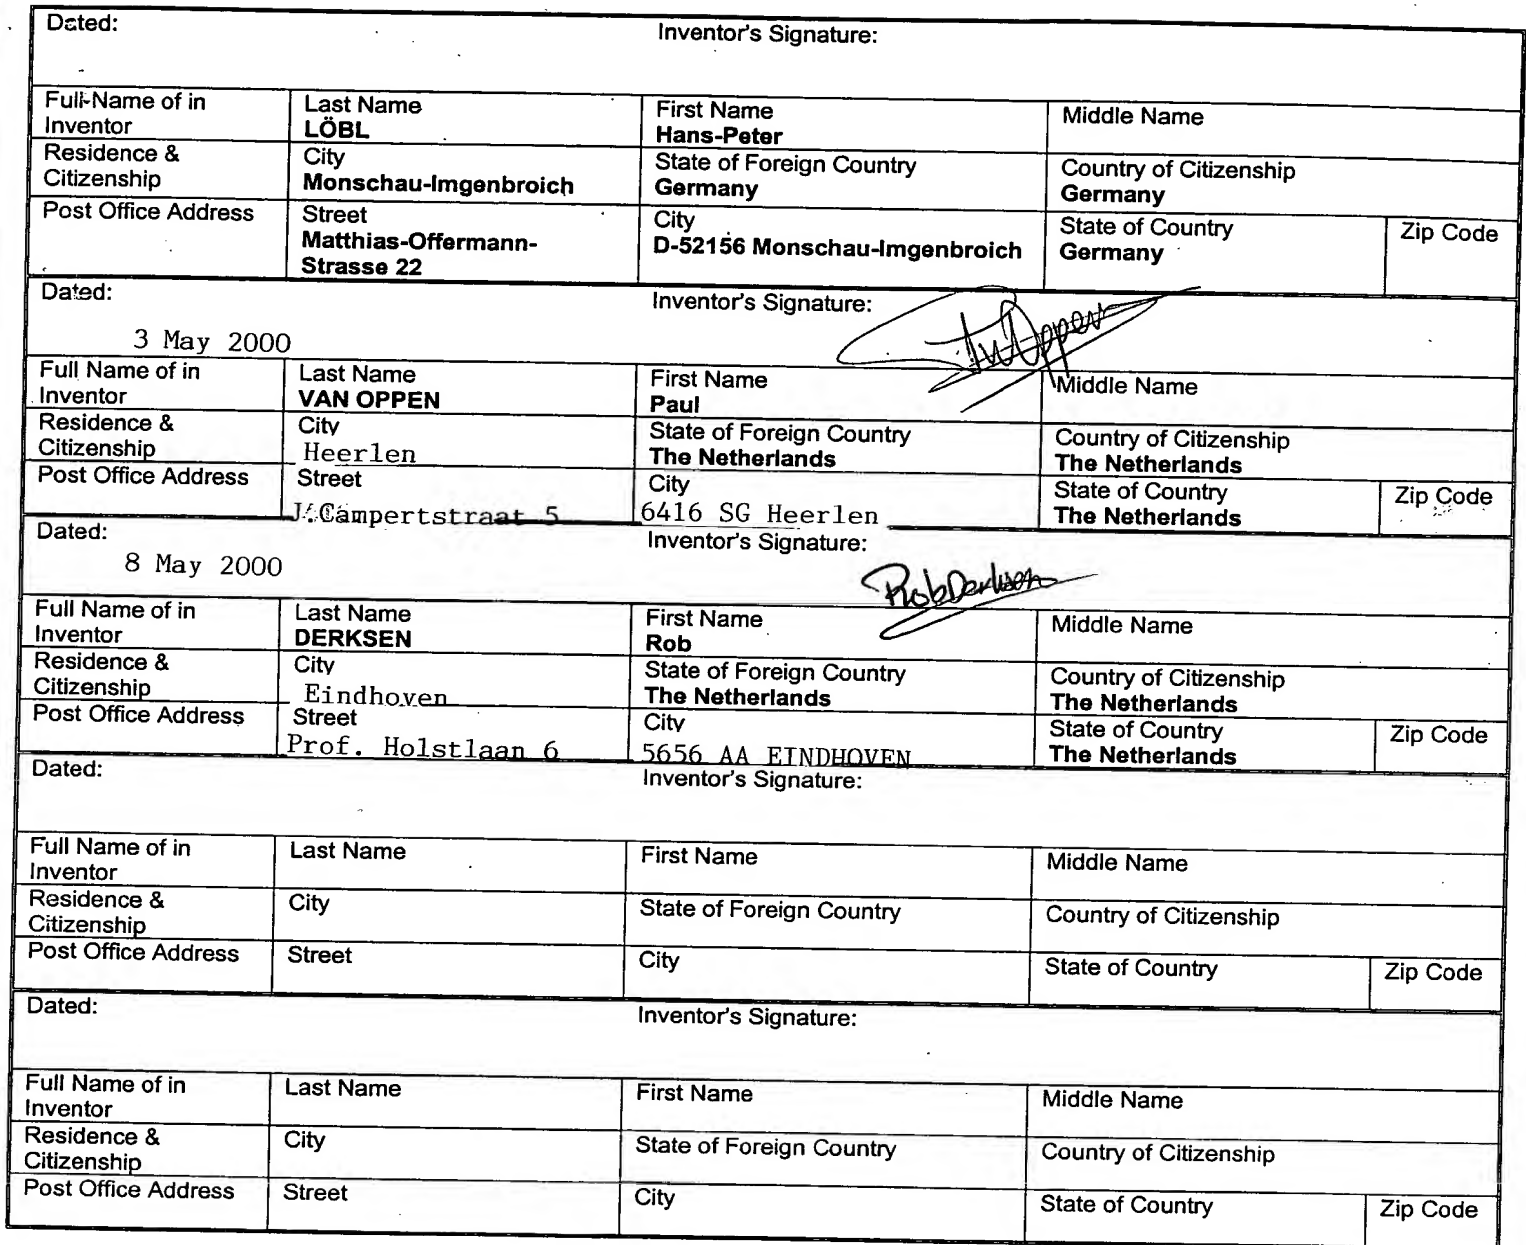 Dated: Inventor's Signature:
Full Name of in Inventor Last Name LÖBL First Name Hans-Peter Middle Name
Residence & Citizenship City Monschau-Imgenbroich State of Foreign Country Germany Country of Citizenship Germany
Post Office Address Street Matthias-Offermann-Strasse 22 City D-52156 Monschau-Imgenbroich State of Country Germany Zip Code
Dated: 3 May 2000 Inventor's Signature:
Full Name of in Inventor Last Name VAN OPPEN First Name Paul Middle Name
Residence & Citizenship City Heerlen State of Foreign Country The Netherlands Country of Citizenship The Netherlands
Post Office Address Street Campertstraat 5 City 6416 SG Heerlen State of Country The Netherlands Zip Code
Dated: 8 May 2000 Inventor's Signature: Rob Derksen
Full Name of in Inventor Last Name DERKSEN First Name Rob Middle Name
Residence & Citizenship City Eindhoven State of Foreign Country The Netherlands Country of Citizenship The Netherlands
Post Office Address Street Prof. Holstlaan 6 City 5656 AA EINDHOVEN State of Country The Netherlands Zip Code
Dated: Inventor's Signature:
Full Name of in Inventor Last Name First Name Middle Name
Residence & Citizenship City State of Foreign Country Country of Citizenship
Post Office Address Street City State of Country Zip Code
Dated: Inventor's Signature:
Full Name of in Inventor Last Name First Name Middle Name
Residence & Citizenship City State of Foreign Country Country of Citizenship
Post Office Address Street City State of Country Zip Code